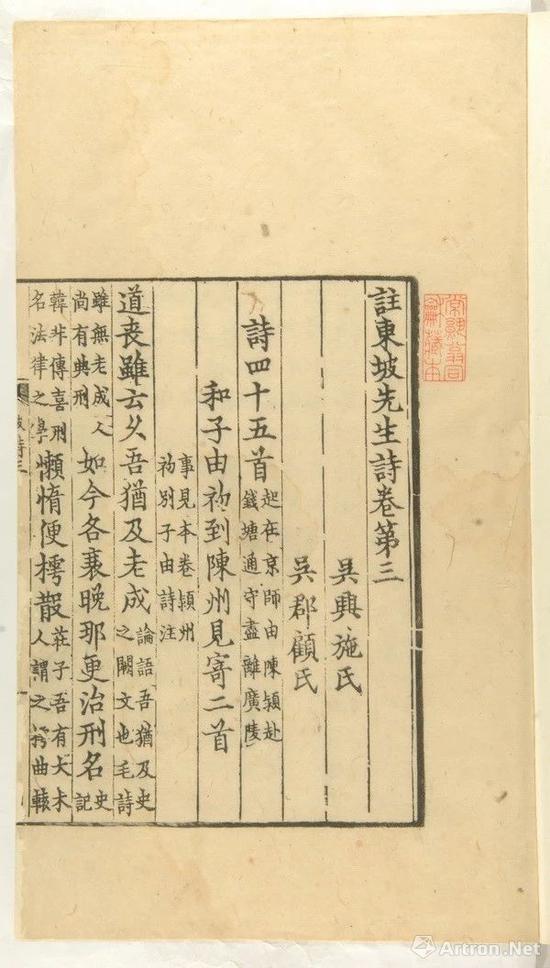 常熟翁同
龢藏本
註東坡先生詩卷第三
吳興施氏
吳郡顧氏
詩四十五首起在京師由陳潁赴錢塘通守盡離廣陵
和子由初到陳州見寄二首
事見本卷潁州初別子由詩注
道喪雖云久吾猶及老成論語吾猶及史之闕文也毛詩
雖無老成人尚有典刑如今各衰晚那更治刑名史記
韓非傳喜刑名法律之學懶惰便樗散莊子吾有大木人謂之樗曲轅
坡詩三
Artron.Net